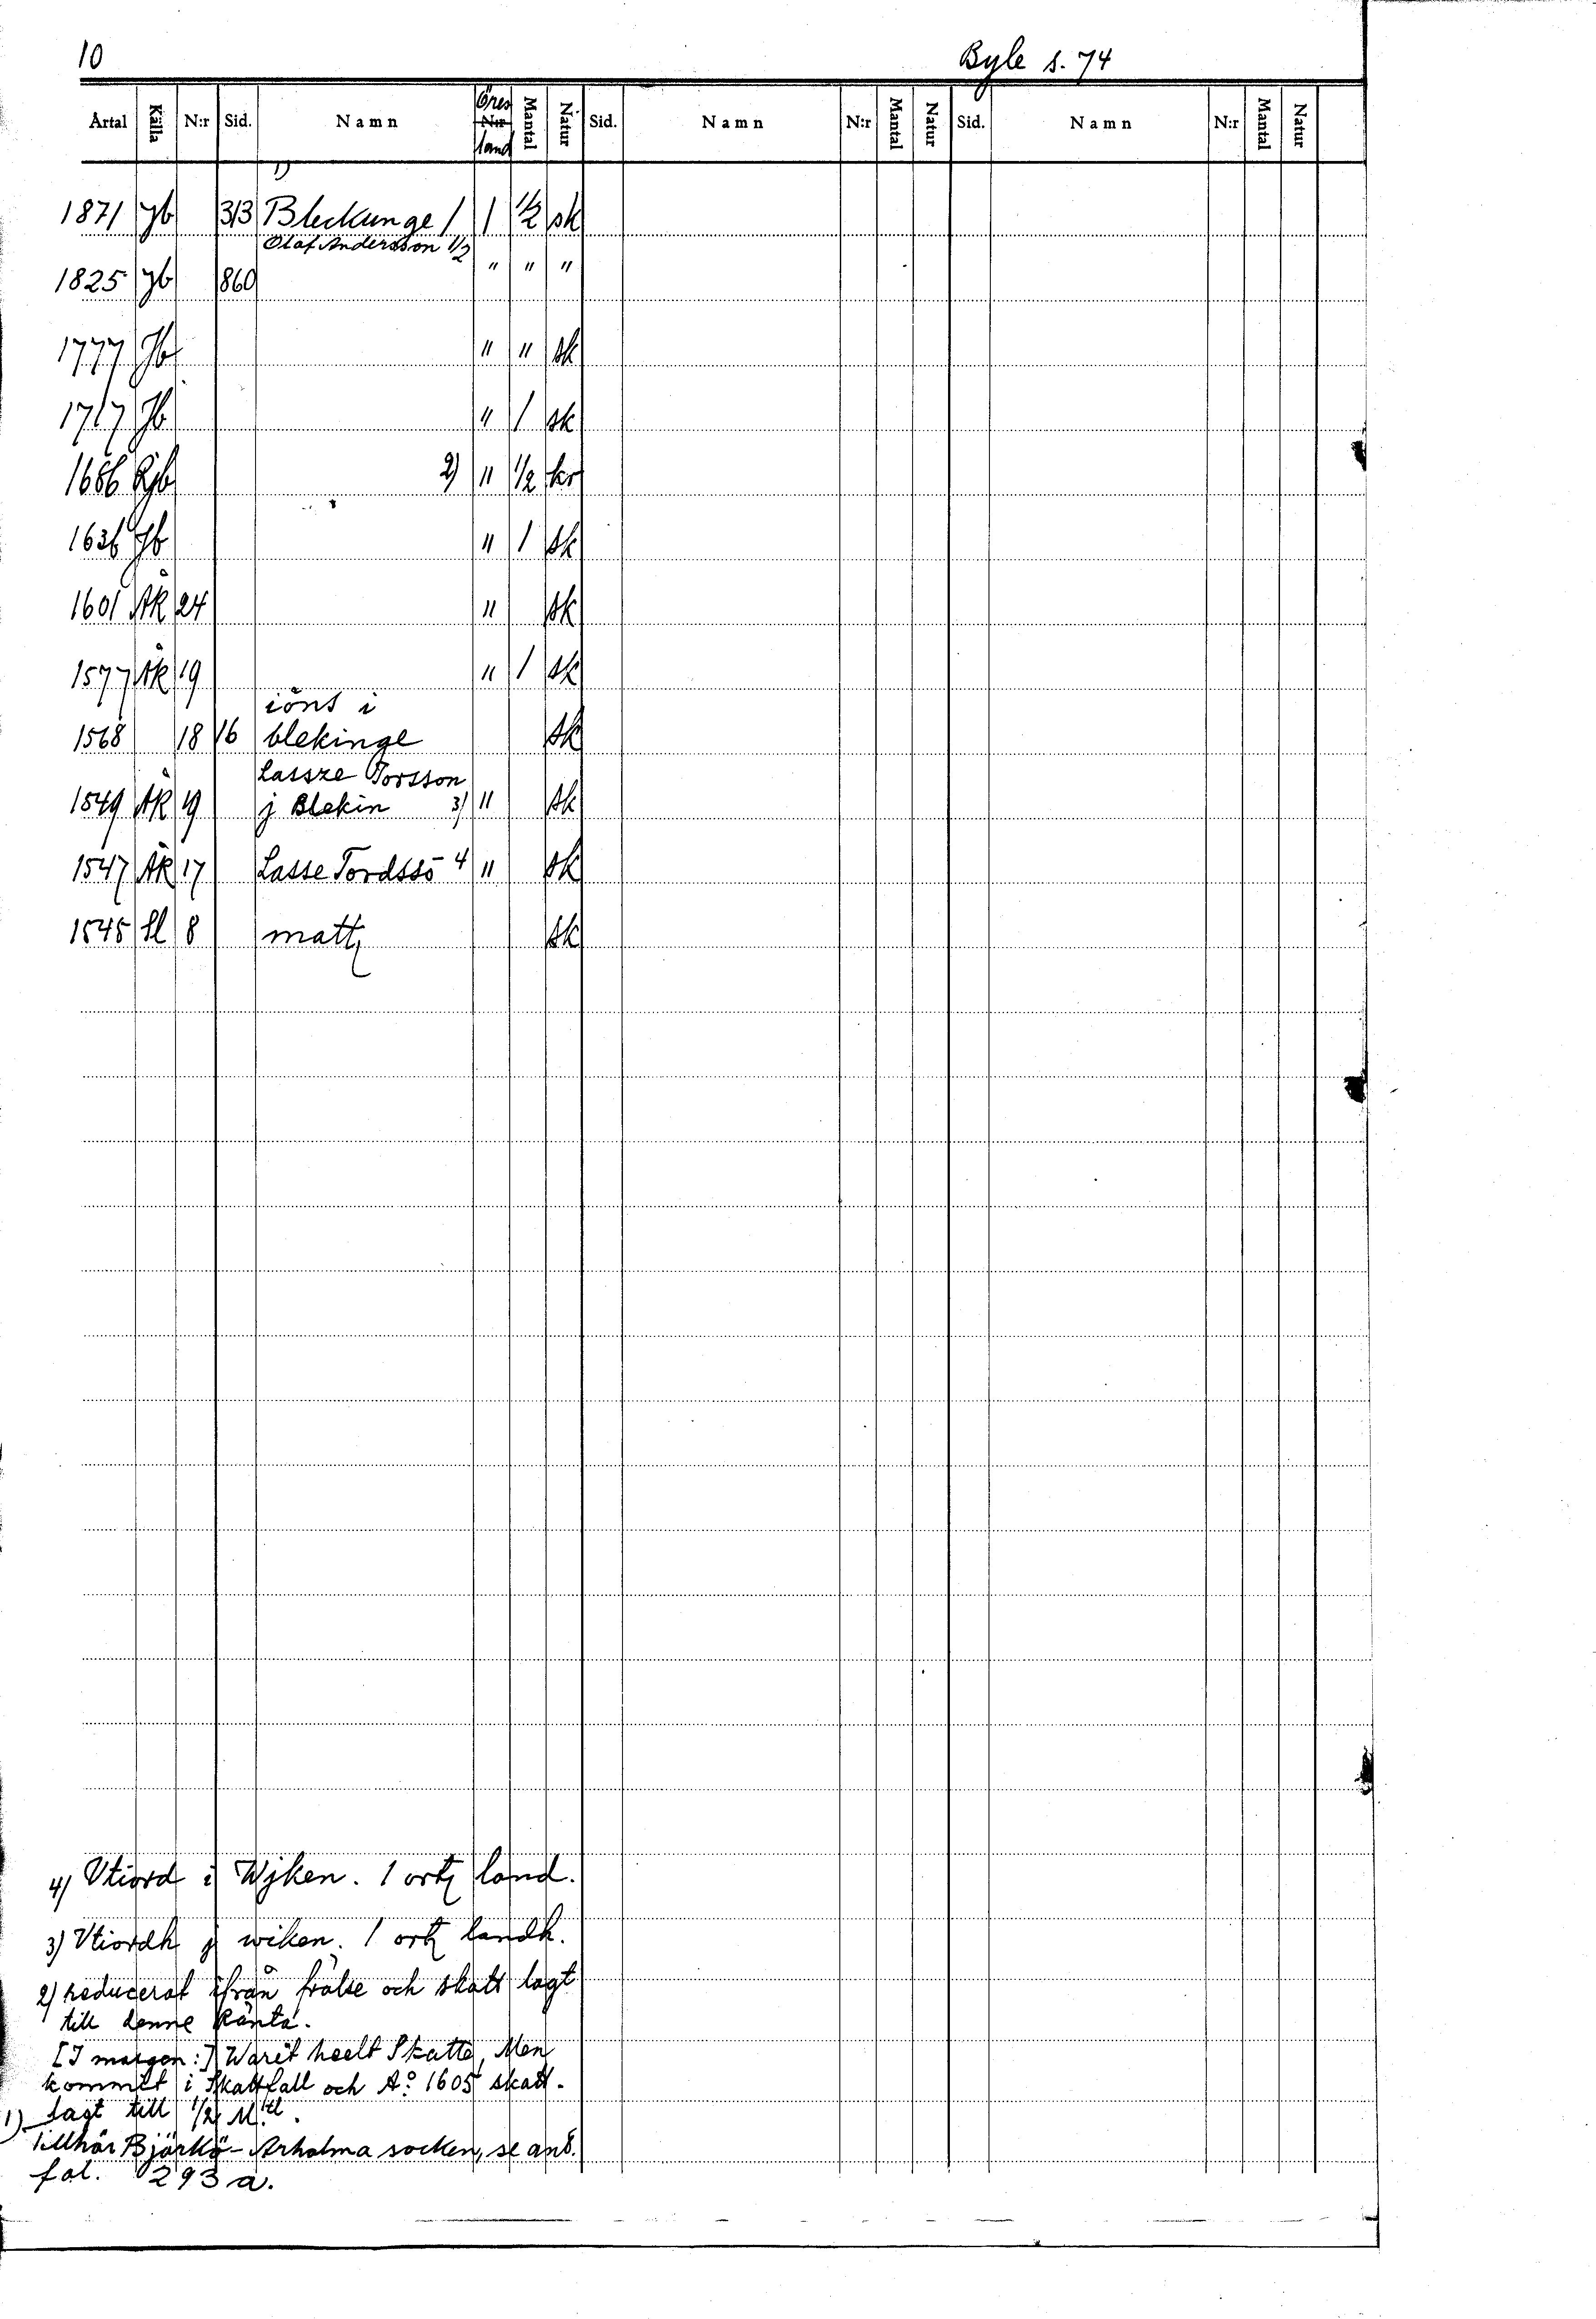 10
Byle s. 74
Årtal Källa N:r Sid. Namn Öres N:r land Mantal Natur Sid. Namn N:r Mantal Natur Sid. Namn N:r Mantal Natur
1)
1871 Jb 313 Bleckunge / 1 1/2 sk
Olaf Andersson 1/2
1825 Jb 860 " " "
1777 Jb " " sk
1717 Jb " 1 sk
1686 Rjb 2) " 1/2 kr
1636 Jb " 1 sk
1601 ÅR 24 " sk
1577 ÅR 19 " 1 sk
iöns i
1568 18 16 blekinge sk
Lassze Torsson
1549 ÅR 19 j Blekin 3) " sk
1547 ÅR 17 Lasse Tordssō 4 " sk
1545 Sl 8 mattz sk
4) Vtiord i Wjken. 1 ortz land.
3) Vtiordh j wiken. 1 ortz landh.
2) reducerat ifrån frälse och skatt lagt
till denne Ränta.
[I margen:] Warit heelt Skatte, Men
kommit i Skattfall och A:o 1605 skatt.
lagt till 1/2 M:tl.
1) Tillhör Björkö-Arholma socken, se ant.
fol. 293 a.